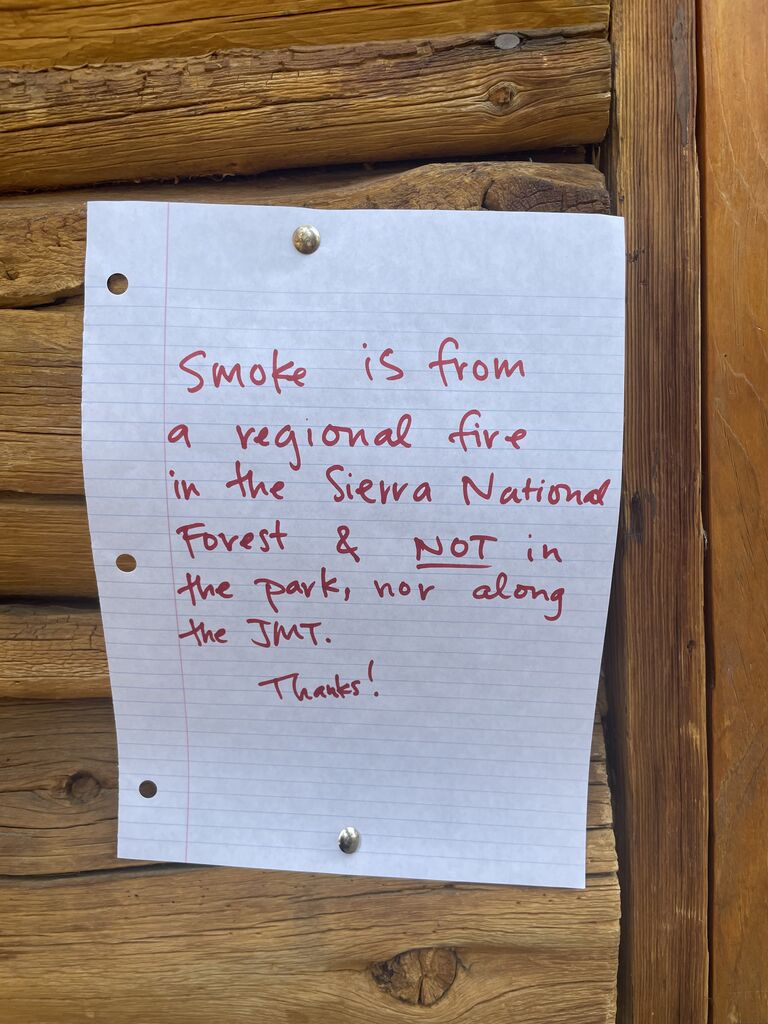 Smoke is from
a regional fire
in the Sierra National
Forest & NOT in
the park, nor along
the JMT.
Thanks!